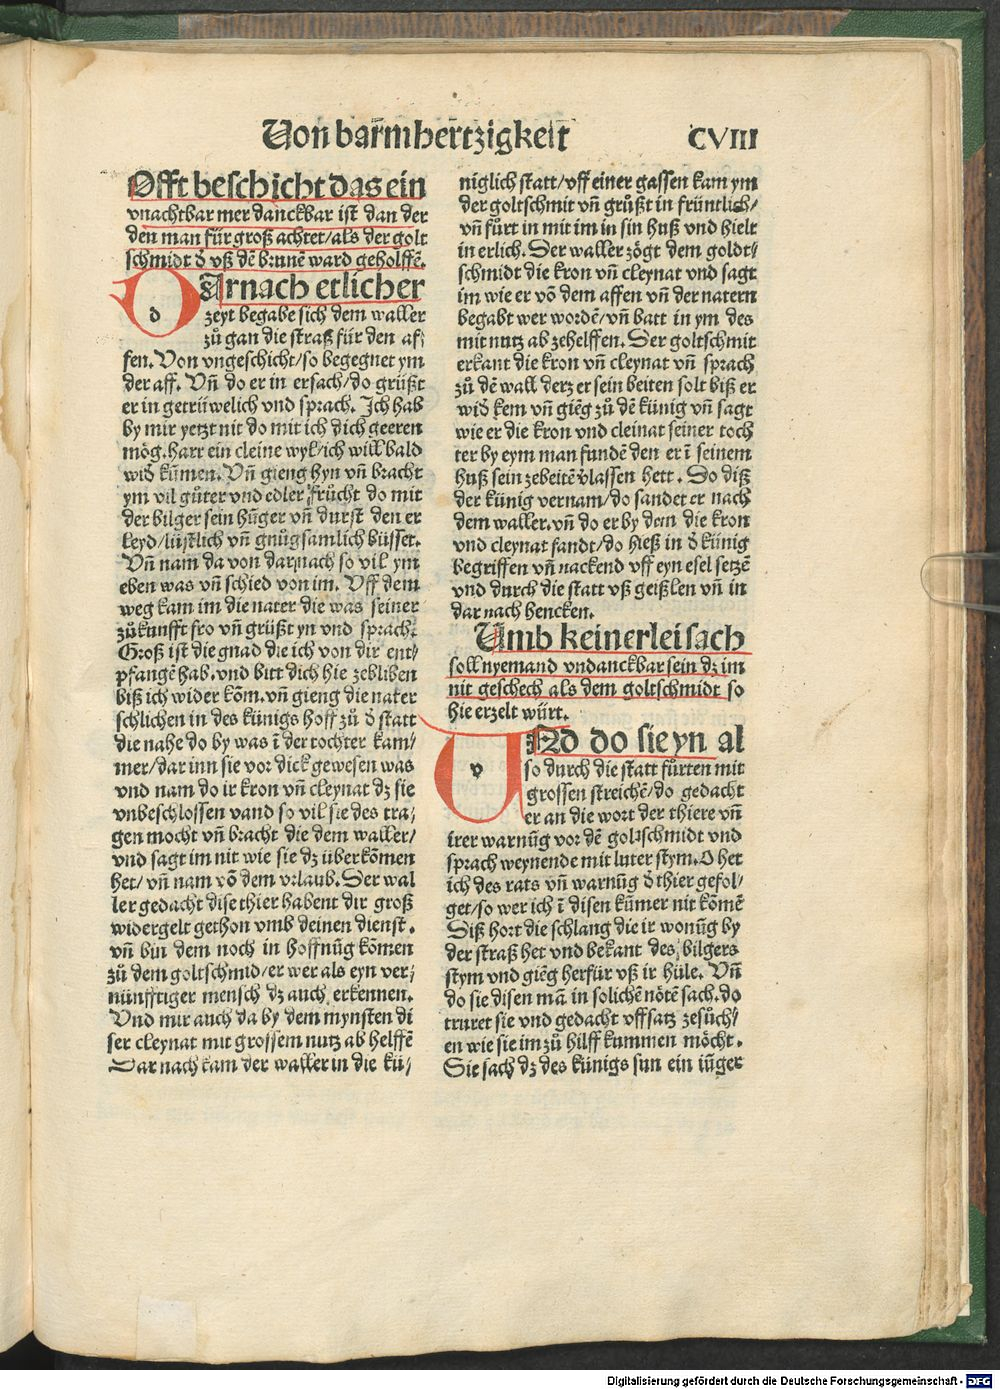 Von barmhertzigkeit CVIII
Offt beschicht das ein
vnachtbar mer danckbar ist dan der
den man für groß achtet/als der golt
schmidt d̕ vß dē brunnē ward geholffē.
DArnach etlicher
zeyt begabe sich dem waller
zů gan die straß für den af⸗
fen. Von vngeschicht/so begegnet ym
der aff. Vñ do er in ersach/do grüßt
er in getrüwelich vnd sprach. Ich hab
by mir yetzt nit do mit ich dich geeren
mög. harr ein cleine wyl/ich will bald
wid̕ kūmen. Vñ gieng hyn vñ bracht
ym vil gůter vnd edler frücht do mit
der bilger sein hūger vñ durst den er
leyd/lüstlich vñ gnůgsamlich büsset.
Vñ nam da von darnach so vil ym
eben was vñ schied von im. Vff dem
weg kam im die nater die was seiner
zůkunfft fro vñ grüßt yn vnd sprach.
Groß ist die gnad die ich von dir ent⸗
pfangē hab. vnd bitt dich hie zebliben
biß ich wider kōm. vñ gieng die nater
schlichen in des künigs hoff zů d̕ statt
die nahe do by was ī der tochter kam⸗
mer/dar inn sie vor dick gewesen was
vnd nam do ir kron vñ cleynat dz sie
vnbeschlossen vand so vil sie des tra⸗
gen mocht vñ bracht die dem waller/
vnd sagt im nit wie sie dz überkōmen
het/ vñ nam vō dem vrlaub. Der wal
ler gedacht dise thier habent dir groß
widergelt gethon vmb deinen dienst.
vñ bin dem noch in hoffnūg kōmen
zů dem goltschmid/er wer als eyn ver⸗
nünfftiger mensch dz auch erkennen.
Vnd mir auch da by dem mynsten di
ser cleynat mit grossem nutz ab helffē
Dar nach kam der waller in die kü⸗
niglich statt/vff einer gassen kam ym
der goltschmit vñ grůßt in früntlich/
vñ fürt in mit im in sin huß vnd hielt
in erlich. Der waller zögt dem goldt⸗
schmidt die kron vñ cleynat vnd sagt
im wie er vō dem affen vñ der natern
begabt wer wordē/vñ batt in ym des
mit nutz ab zehelffen. Der goltschmit
erkant die kron vñ cleynat vñ sprach
zů dē wall derz er sein beiten solt biß er
wid̕ kem vñ giēg zů dē künig vñ sagt
wie er die kron vnd cleinat seiner toch
ter by eym man fundē den er ī seinem
huß sein zebeitē v̕lassen hett. Do diß
der künig vernam/do sandet er nach
dem waller. vñ do er by dem die kron
vnd cleynat fandt/do hieß in d̕ künig
begriffen vñ nackend vff eyn esel setzē
vnd durch die statt vß geißlen vñ in
dar nach hencken.
Umb keinerlei sach
soll nyemand vndanckbar sein dz im
nit geschech als dem goltschmidt so
hie erzelt würt.
VNd do sie yn al
so durch die statt fürten mit
grossen streichē/do gedacht
er an die wort der thiere vñ
irer warnūg vor dē goltschmidt vnd
sprach weynende mit luter stym. O het
ich des rats vñ warnūg d̕ thier gefol⸗
get/so wer ich ī disen kūmer nit kōmē
Diß hort die schlang die ir wonūg by
der straß het vnd bekant des bilgers
stym vnd giēg herfür vß ir hüle. Vñ
do sie disen mā in solichē nōtē sach. do
truret sie vnd gedacht vffsatz zesůch⸗
en wie sie im zů hilff kummen möcht.
Sie sach dz des künigs sun ein iūger
Digitalisierung gefördert durch die Deutsche Forschungsgemeinschaft - DFG